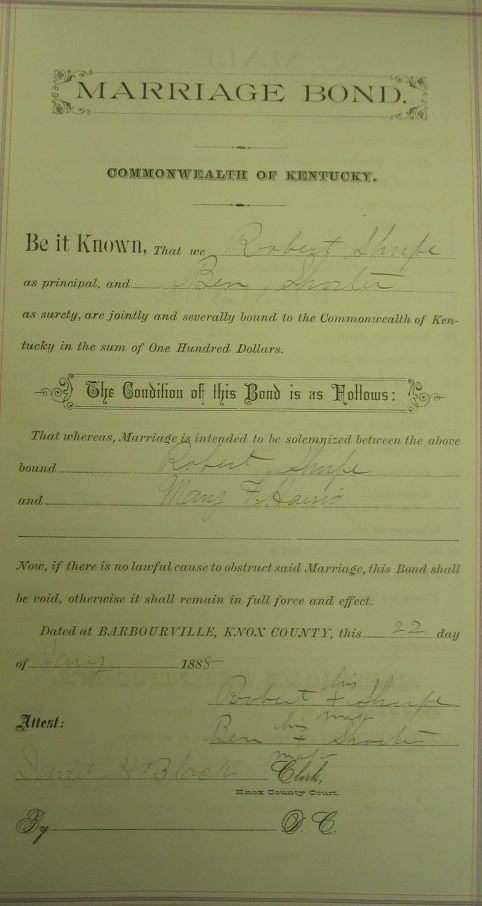 MARRIAGE BOND.
COMMONWEALTH OF KENTUCKY.
Be it Known, That we Robert Shupe
as principal, and Ben Shorter
as surety, are jointly and severally bound to the Commonwealth of Ken-
tucky in the sum of One Hundred Dollars.
The Condition of this Bond is as Follows:
That whereas, Marriage is intended to be solemnized between the above
bound Robert Shupe
and Mary F.
Now, if there is no lawful cause to obstruct said Marriage, this Bond shall
be void, otherwise it shall remain in full force and effect.
Dated at BARBOURVILLE, KNOX COUNTY, this 22 day
of Jany 1888
his
Robert + Shupe
mark
Attest:
his
Ben + Shorter
mark
Clerk,
Knox County Court.
By D. C.